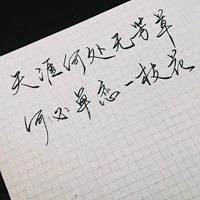 天涯何处无芳草
何必单恋一枝花